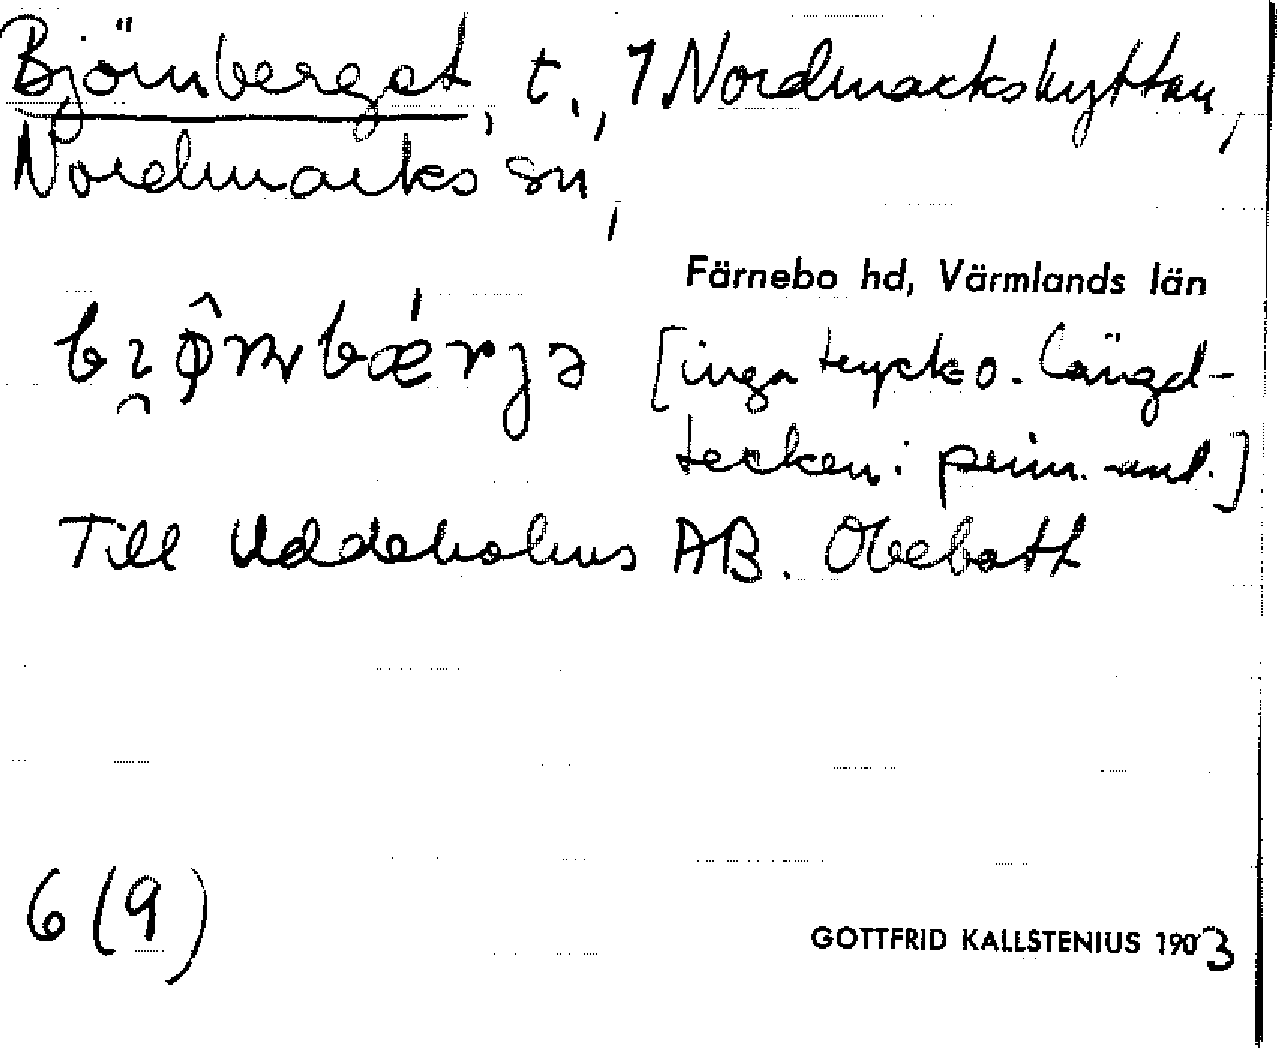 Björnberget, t., 1 Nordmarkshyttan,
Nordmarks sn,
Färnebo hd, Värmlands län
[inga tryck- o. längd-
tecken i prim.-uppt.]
Till Uddeholms AB. Obebott
6 (9)
GOTTFRID KALLSTENIUS 1903